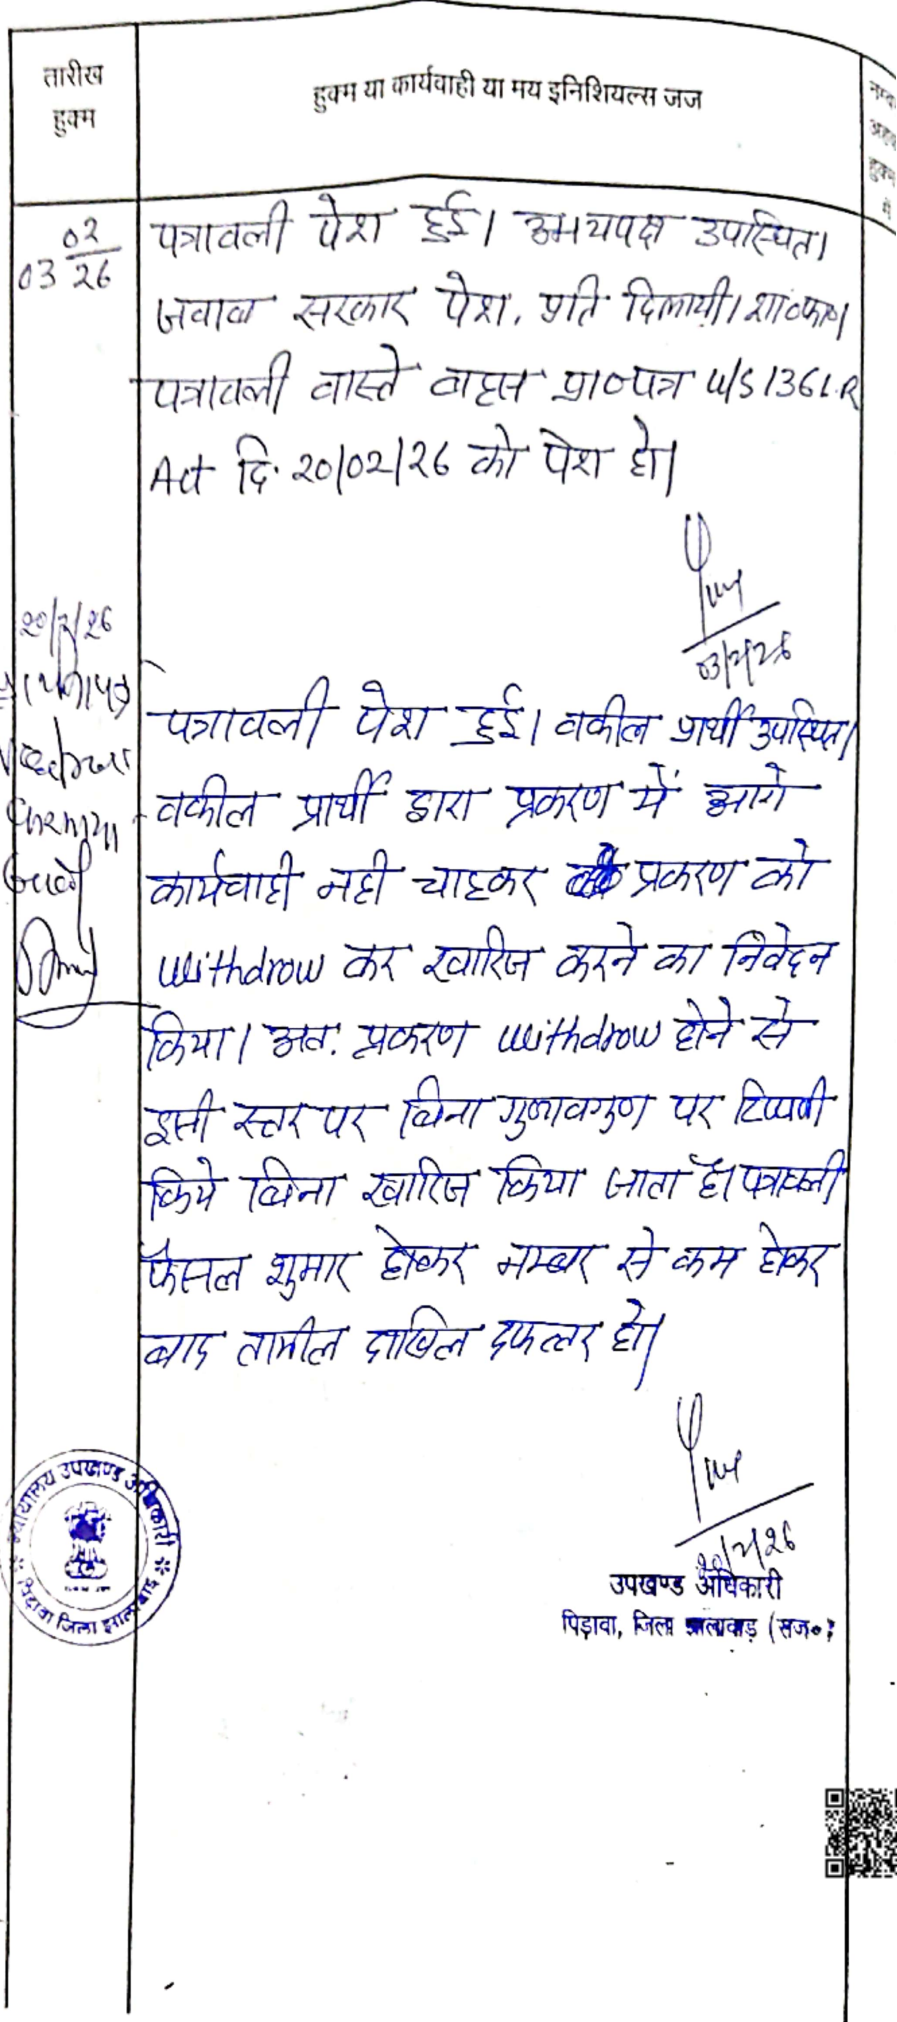 तारीख
हुक्म
हुक्म या कार्यवाही या मय इनिशियल्स जज
हुक्म
में
03 02/26
पत्रावली पेश हुई। उभयपक्ष उपस्थित।
जवाब सरकार पेश, प्रति दिलायी। शा०फा०।
पत्रावली वास्ते बहस प्रा०पत्र u/s 136 L.R
Act दि. 20/02/26 को पेश हो।
03/2/26
20/2/26
पत्रावली पेश हुई। वकील प्रार्थी उपस्थित।
वकील प्रार्थी द्वारा प्रकरण में आगे
कार्यवाही नही चाहकर प्रकरण को
withdrow कर खारिज करने का निवेदन
किया। अत: प्रकरण withdrow होने से
इसी स्तर पर बिना गुणावगुण पर टिप्पणी
किये बिना खारिज किया जाता है। पत्रावली
फैसल शुमार होकर नम्बर से कम होकर
बाद तामील दाखिल दफ्तर हो।
20/2/26
उपखण्ड अधिकारी
पिड़ावा, जिला झालावाड़ (राज०)
न्यायालय उपखण्ड अधिकारी
पिड़ावा जिला झालावाड़